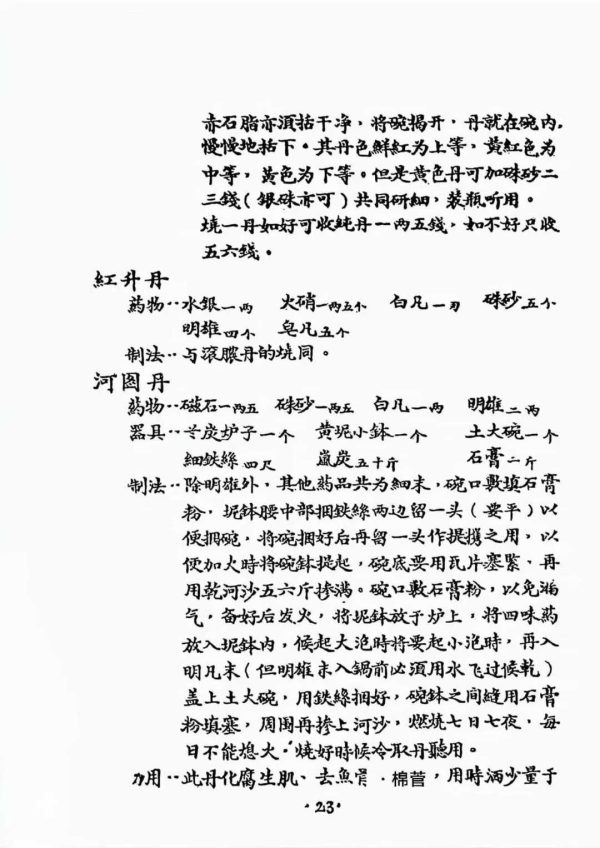 赤石脂亦須括干净，将碗揭开，丹就在碗内，
慢慢地括下。其丹色鮮紅为上等，黄紅色为
中等，黄色为下等。但是黄色丹可加硃砂二
三錢（銀硃亦可）共同研細，装瓶听用。
燒一丹如好可收純丹一两五錢，如不好只收
五六錢。
紅升丹
葯物··水銀一两　火硝一两五个　白凡一刃　硃砂五个
明雄四个　皂凡五个
制法··与滚膿丹的烧同。
河图丹
葯物··磁石一两五　硃砂一两五　白凡一两　明雄二两
器具··炭炉子一个　黄坭小鉢一个　土大碗一个
細鉄絲四尺　嵐炭五十斤　石膏二斤
制法··除明雄外，其他葯品共为細末，碗口敷填石膏
粉，坭鉢腰中部捆鉄絲两边留一头（要平）以
便捆碗，将碗捆好后再留一头作提携之用，以
便加火時将碗鉢提起，碗底要用瓦片塞緊、再
用乾河沙五六斤掺满。碗口敷石膏粉，以免漏
气，备好后发火，将坭鉢放于炉上，将四味葯
放入坭鉢内，候起大泡時将要起小泡時，再入
明凡末（但明雄末入鍋前必須用水飞过候乾）
盖上土大碗，用鉄絲捆好，碗鉢之间縫用石膏
粉填塞，周围再掺上河沙，燃燒七日七夜，每
日不能熄火·燒好時候冷取丹聽用。
力用··此丹化腐生肌、去魚骨．棉萱，用時洒少量于
·23·